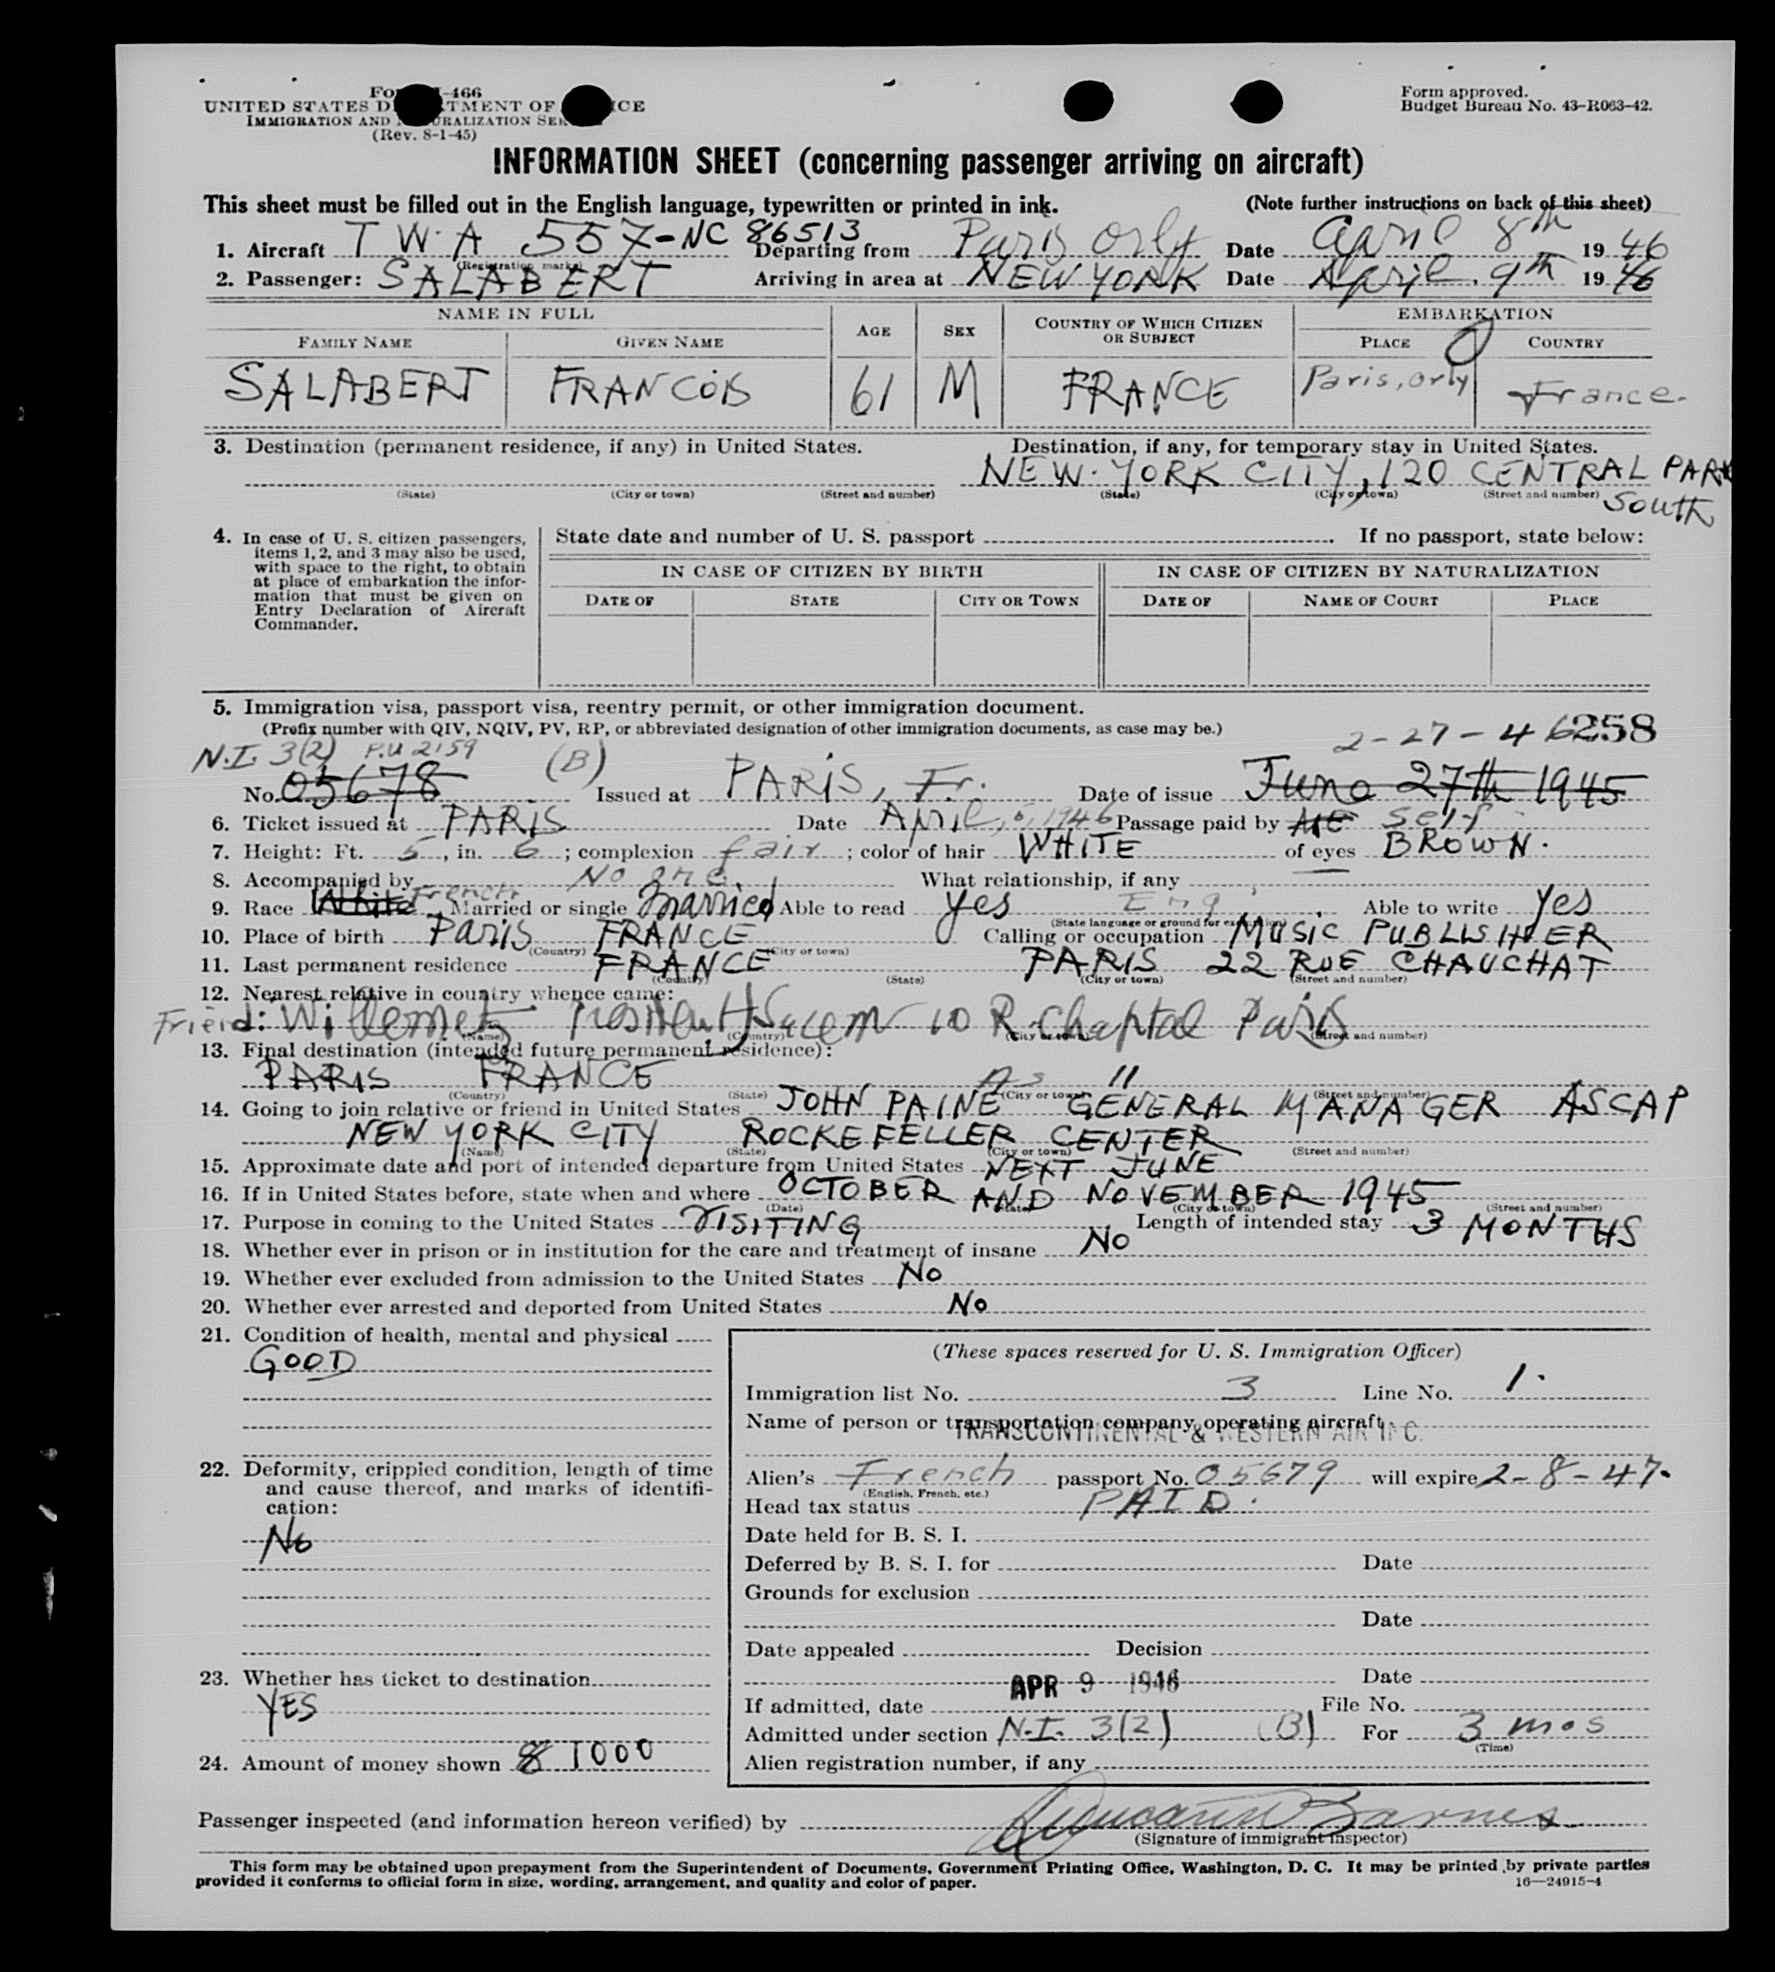 Form I-466
UNITED STATES DEPARTMENT OF JUSTICE
IMMIGRATION AND NATURALIZATION SERVICE
(Rev. 8-1-45)
Form approved.
Budget Bureau No. 43-R063-42.
INFORMATION SHEET (concerning passenger arriving on aircraft)
This sheet must be filled out in the English language, typewritten or printed in ink. (Note further instructions on back of this sheet)
1. Aircraft TWA 557-NC 86513 Departing from Paris Orly Date April 8th 1946
(Registration marks)
2. Passenger: SALABERT Arriving in area at NEW YORK Date April 9th 1946
NAME IN FULL AGE SEX COUNTRY OF WHICH CITIZEN OR SUBJECT EMBARKATION
FAMILY NAME GIVEN NAME PLACE COUNTRY
SALABERT FRANCOIS 61 M FRANCE Paris, Orly France
3. Destination (permanent residence, if any) in United States. Destination, if any, for temporary stay in United States.
NEW YORK CITY, 120 CENTRAL PARK
South
(State) (City or town) (Street and number) (State) (City or town) (Street and number)
4. In case of U. S. citizen passengers,
items 1, 2, and 3 may also be used,
with space to the right, to obtain
at place of embarkation the infor-
mation that must be given on
Entry Declaration of Aircraft
Commander.
State date and number of U. S. passport If no passport, state below:
IN CASE OF CITIZEN BY BIRTH IN CASE OF CITIZEN BY NATURALIZATION
DATE OF STATE CITY OR TOWN DATE OF NAME OF COURT PLACE
5. Immigration visa, passport visa, reentry permit, or other immigration document.
(Prefix number with QIV, NQIV, PV, RP, or abbreviated designation of other immigration documents, as case may be.)
N.I. 3(2) P.V. 2159 (B) 2-27-46 258
No. 05678 Issued at PARIS, Fr. Date of issue June 27th 1945
6. Ticket issued at PARIS Date April, 6, 1946 Passage paid by ME Self
7. Height: Ft. 5, in. 6; complexion fair; color of hair WHITE of eyes BROWN.
8. Accompanied by No one. What relationship, if any
9. Race White French Married or single married Able to read yes Eng. Able to write yes
(State language or ground for exemption)
10. Place of birth Paris FRANCE Calling or occupation MUSIC PUBLISHER
(Country) (City or town)
11. Last permanent residence FRANCE PARIS 22 RUE CHAUCHAT
(Country) (State) (City or town) (Street and number)
12. Nearest relative in country whence came:
Friend: Willemetz President Sacem 10 R. Chaptal Paris
(Name) (Country) (City or town) (Street and number)
13. Final destination (intended future permanent residence):
PARIS FRANCE As 11
(Country) (State) (City or town) (Street and number)
14. Going to join relative or friend in United States JOHN PAINE GENERAL MANAGER ASCAP
NEW YORK CITY ROCKEFELLER CENTER
(Name) (State) (City or town) (Street and number)
15. Approximate date and port of intended departure from United States NEXT JUNE
16. If in United States before, state when and where OCTOBER AND NOVEMBER 1945
(Date) (State) (City or town) (Street and number)
17. Purpose in coming to the United States VISITING Length of intended stay 3 MONTHS
18. Whether ever in prison or in institution for the care and treatment of insane No
19. Whether ever excluded from admission to the United States No
20. Whether ever arrested and deported from United States No
21. Condition of health, mental and physical
GOOD
22. Deformity, crippled condition, length of time
and cause thereof, and marks of identifi-
cation:
No
23. Whether has ticket to destination
YES
24. Amount of money shown $ 1000
(These spaces reserved for U. S. Immigration Officer)
Immigration list No. 3 Line No. 1.
Name of person or transportation company operating aircraft
TRANSCONTINENTAL & WESTERN AIR INC.
Alien's French passport No. 05679 will expire 2-8-47.
(English, French, etc.)
Head tax status PAID.
Date held for B. S. I.
Deferred by B. S. I. for Date
Grounds for exclusion
Date
Date appealed Decision
Date
APR 9 1946
If admitted, date File No.
Admitted under section N.I. 3(2) (B) For 3 mos
(Time)
Alien registration number, if any
Passenger inspected (and information hereon verified) by Barnes
(Signature of immigrant inspector)
This form may be obtained upon prepayment from the Superintendent of Documents, Government Printing Office, Washington, D. C. It may be printed by private parties
provided it conforms to official form in size, wording, arrangement, and quality and color of paper.
16—24915-4